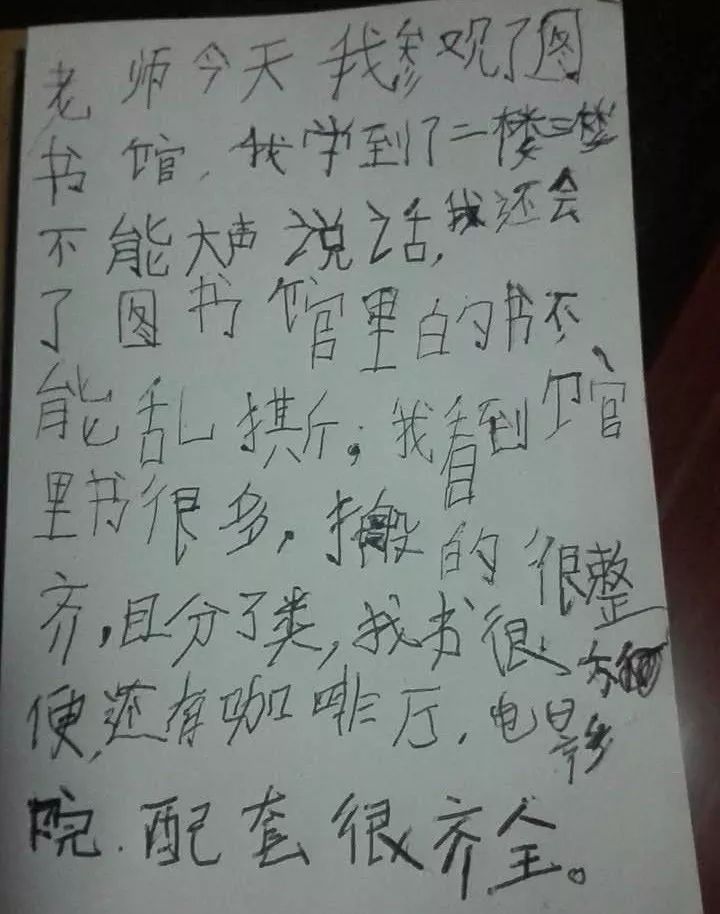 老师今天我参观了图
书馆,我学到了二楼三楼
不能大声说话,我还会
了图书馆里的书不
能乱撕;我看到馆
里书很多,搬的很整
齐,且分了类,找书很方
便,还有咖啡厅,电影
院.配套很齐全。